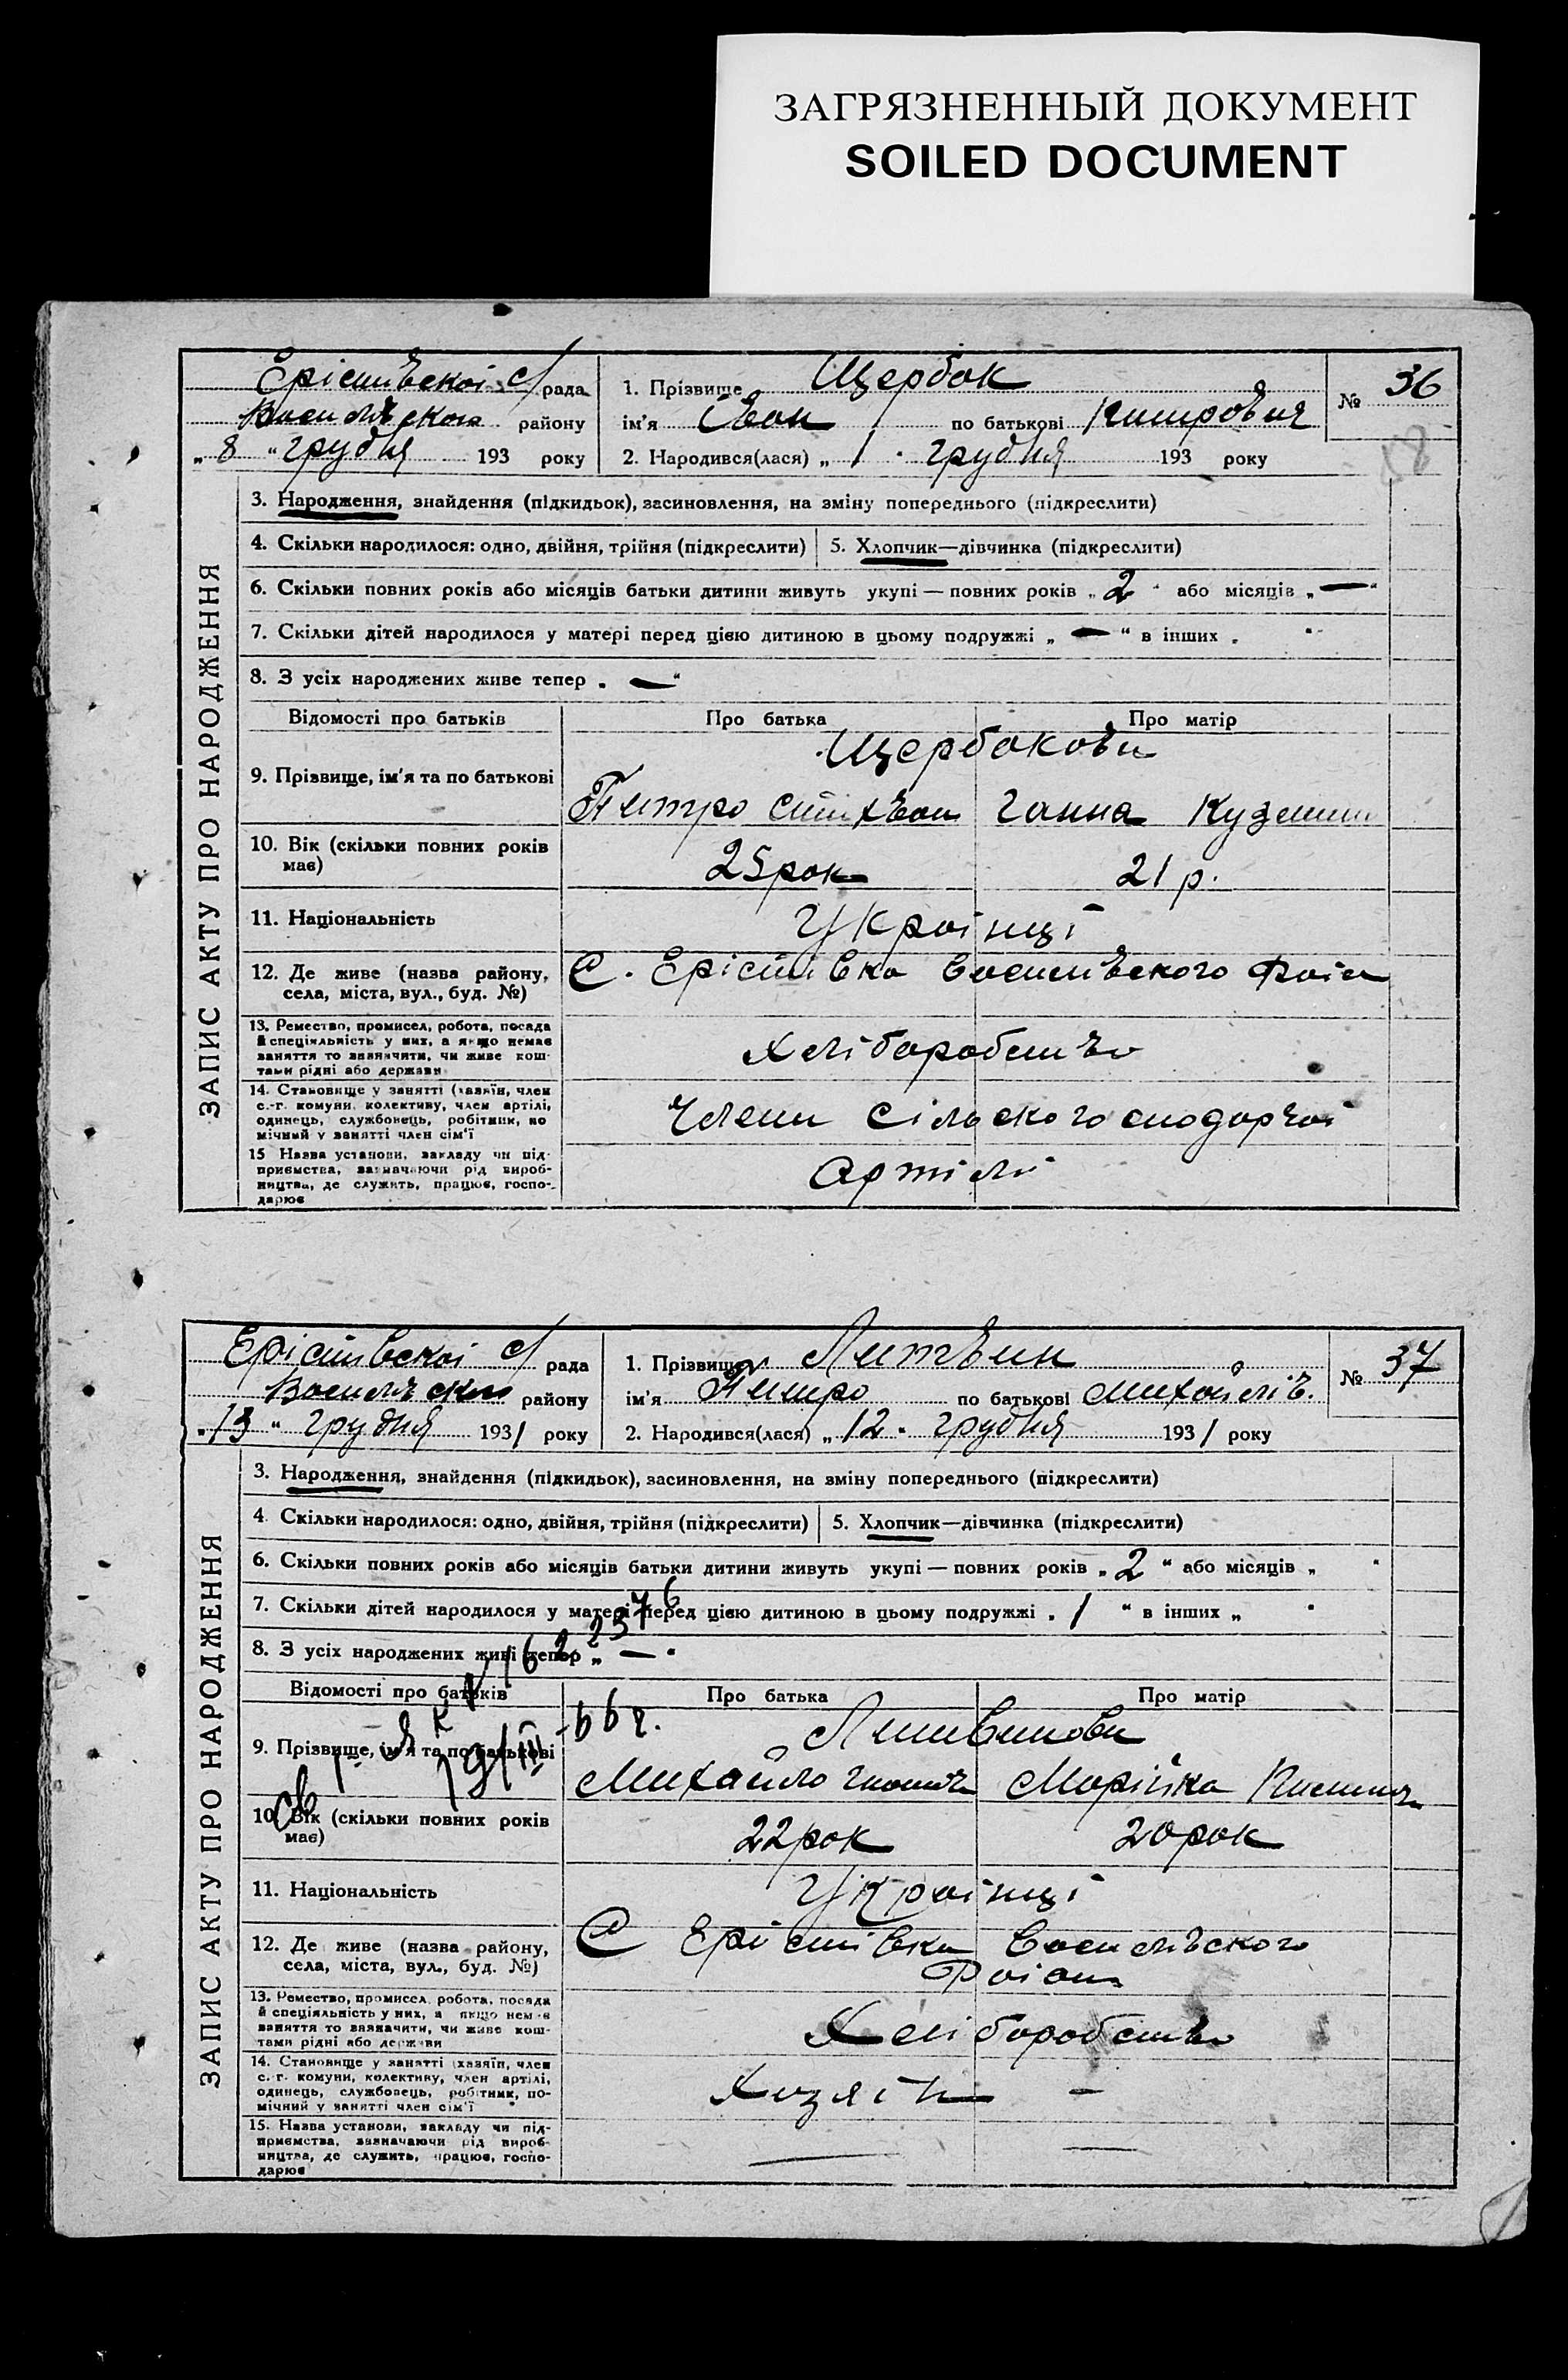 ЗАГРЯЗНЕННЫЙ ДОКУМЕНТ
SOILED DOCUMENT
ЗАПИС АКТУ ПРО НАРОДЖЕННЯ
Ерістівскоі с/рада
району
„8 "грудня 193 року
1. Прізвище Щербак
ім'я Іван по батькові
2. Народився(лася) „ 1 " грудня 193 року
№ 36
3. Народження, знайдення (підкидьок), засиновлення, на зміну попереднього (підкреслити)
4. Скільки народилося: одно, двійня, трійня (підкреслити)
5. Хлопчик—дівчинка (підкреслити)
6. Скільки повних років або місяців батьки дитини живуть укупі — повних років „ 2 " або місяців „ — "
7. Скільки дітей народилося у матері перед цією дитиною в цьому подружжі „ — " в інших „ "
8. З усіх народжених живе тепер „ — "
Відомості про батьків Про батька Про матір
9. Прізвище, ім'я та по батькові
Щербакови
Ганна
10. Вік (скільки повних років
має)
25 рок 21 р.
11. Національність
Украінці
12. Де живе (назва району,
села, міста, вул., буд. №)
С. Ерістівка
13. Ремество, промисел, робота, посада
й спеціяльність у них, а якщо немає
заняття то зазначити, чи живе кош-
тами рідні або держави
Хліборобство
14. Становище у занятті (хазяїн, член
с.-г. комуни, колективу, член артілі,
одинець, службовець, робітник, по
мічний у занятті член сім'ї
Члени сільского сподарчоі
15 Назва установи, закладу чи під-
приємства, зазначаючи рід вироб-
ництва, де служить, працює, госпо-
дарює
Артілі
ЗАПИС АКТУ ПРО НАРОДЖЕННЯ
Ерістівскоі с/ рада
району
„13 " грудня 1931 року
1. Прізвище Литвин
ім'я по батькові Михайлів.
2. Народився(лася) „ 12 " грудня 1931 року
№ 37
3. Народження, знайдення (підкидьок), засиновлення, на зміну попереднього (підкреслити)
4. Скільки народилося: одно, двійня, трійня (підкреслити)
5. Хлопчик—дівчинка (підкреслити)
6. Скільки повних років або місяців батьки дитини живуть укупі — повних років „ 2 " або місяців „ "
7. Скільки дітей народилося у матері перед цією дитиною в цьому подружжі „ 1 " в інших „ "
8. З усіх народжених живі тепер „ — "
Відомості про батьків Про батька Про матір
9. Прізвище, ім'я та по батькові
Литвинови
Михайло Марійка
10. Вік (скільки повних років
має)
22 рок 20 рок
11. Національність
Украінці
12. Де живе (назва району,
села, міста, вул., буд. №)
С Ерістівка
13. Ремество, промисел, робота, посада
й спеціяльність у них, а якщо немає
заняття то зазначити, чи живе кош-
тами рідні або держави
Хліборобство
14. Становище у занятті (хазяїн, член
с.-г. комуни, колективу, член артілі,
одинець, службовець, робітник, по-
мічний у занятті член сім'ї
Хазяін —
15. Назва установи, закладу чи під-
приємства, зазначаючи рід вироб-
ництва, де служить, працює, госпо-
дарює
— —